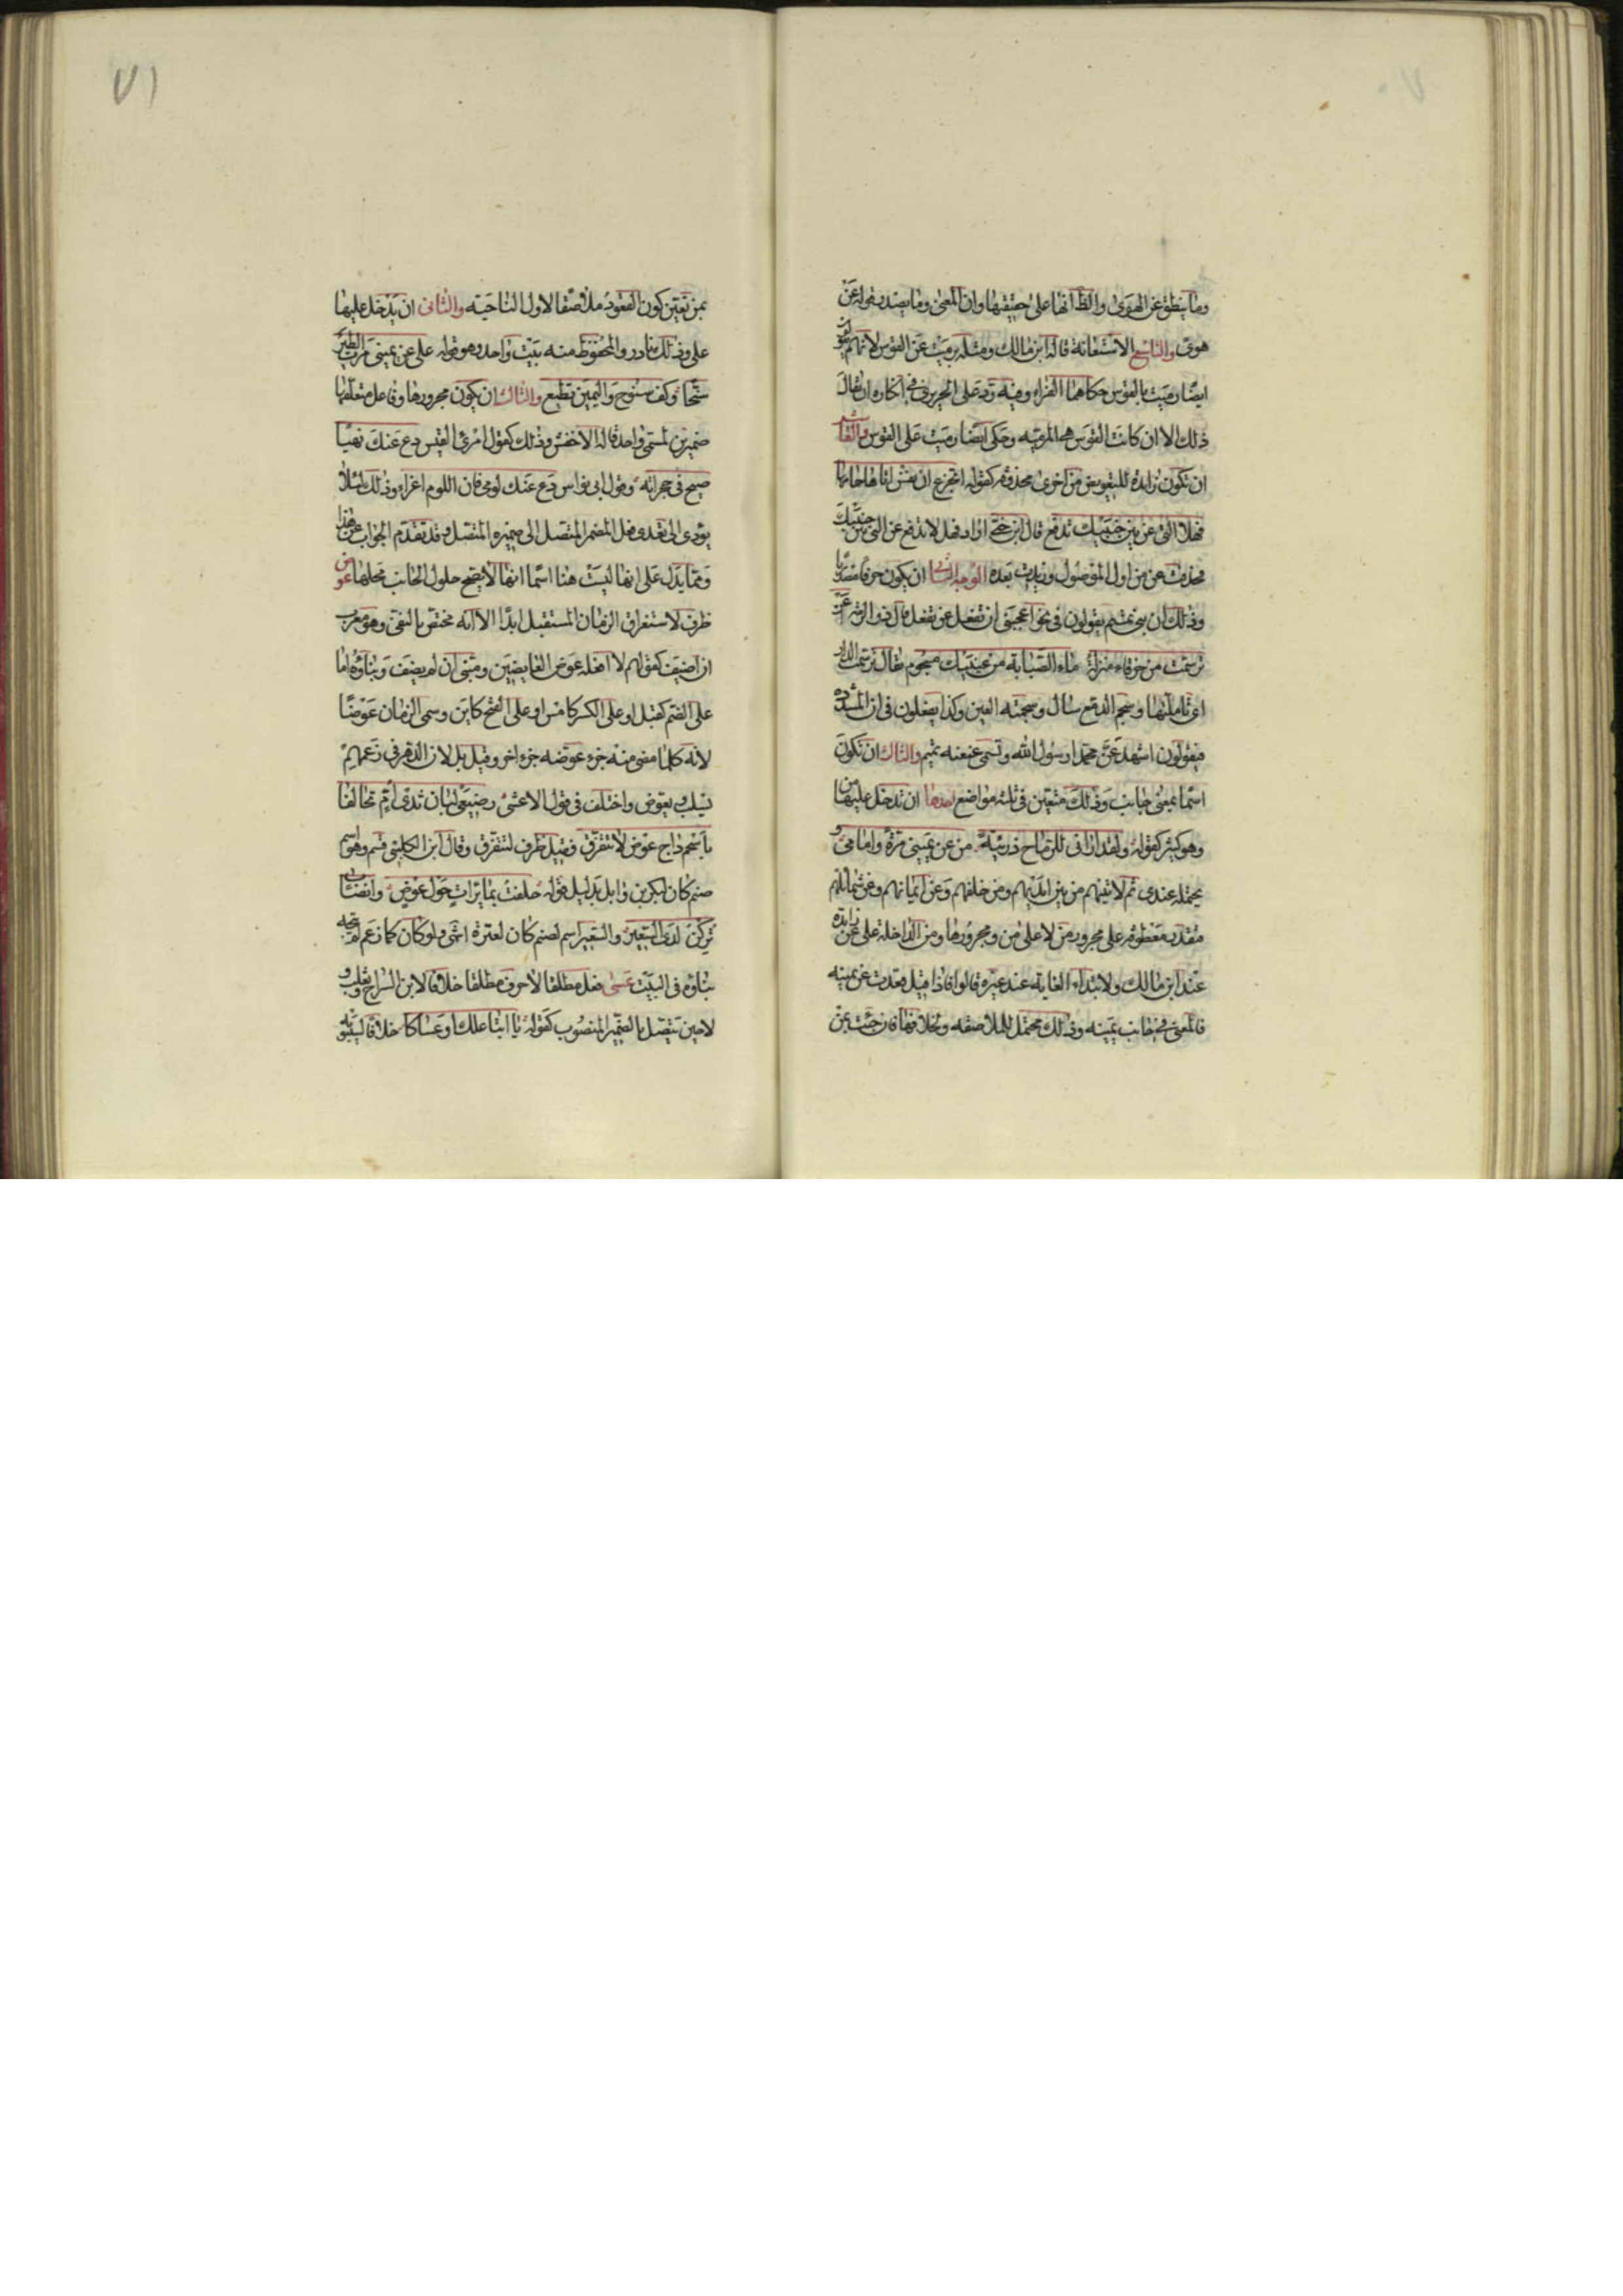 وما ينطق عن الهوى والظ انها على حقيقتها وان المعنى وما يصدر قوله عن
هوى والتاسع الاستعانة قاله ابن مالك ومثله برميت عن القوس لانهم يقولون
ايضا رميت بالقوس حكاهما الفراء وفيه رد على الحريرى فى انكاره ان يقال
ذلك الا ان كانت القوس هى المرميه وحكى ايضا رميت على القوس والعاشر
ان تكون زايده للتعويض من اخرى محذوفه كقوله اتجزع ان نفس اتاها حمامها
فهلا التى عن بين جنبيك تدفع قال ابن جنى اراد فهلا تدفع عن التى بين جنبيك
فحذفت عن من اول الموصول وزيدت بعده الوجه الثانى ان يكون حرفا مصدريا
وذلك ان بنى تميم يقولون فى نحو اعجبنى ان تفعل عن تفعل قال ذو الرمه اعن
ترسمت من خرقاء منزلة ماء الصبابة من عينيك مسجوم يقال ترسمت الدار
اى تاملتها وسجم الدمع سال وسجمته العين وكذا يفعلون فى ان المشدده
فيقولون اشهد عن محمدا رسول الله وتسمى عنعنه تميم والثالث ان تكون
اسما بمعنى جانب وذلك متعين فى ثلثه مواضع احدها ان تدخل عليها من
وهو كثير كقوله ولقد ارانى للرماح دريئة من عن يمينى مرة وامامى و
يحتمله عندى ثم لاتينهم من بين ايديهم ومن خلفهم وعن ايمانهم وعن شمائلهم
مقدر معطوفه على مجرور من لا على من ومجرورها ومن الداخلة على عن زايدة
عند ابن مالك ولابتداء الغاية عند غيره قالوا فاذا قيل قعدت عن يمينه
فالمعنى فى جانب يمينه وذلك محتمل للملاصقه وبخلافها فان جئت بمن
٧١
بمن تعين كون القعود ملاصقا لاول الناحيته والثانى ان يدخل عليها
على وذلك نادر والمحفوظ منه بيت واحد وهو قوله على عن يمينى مرت الطير
سنحا وكيف سنوح واليمين قطيع والثالث ان يكون مجرورها وفاعل متعلقها
ضميرين لمسمى واحد قاله الاخفش وذلك كقول امرئ القيس دع عنك نهبا
صيح فى حجراته وقول ابى نواس دع عنك لومى فان اللوم اغراء وذلك لئلا
يؤدى الى تعدى فعل المضمر المتصل الى ضميره المتصل وقد تقدم الجواب عن هذا
ومما يدل على انها ليست هنا اسما انها لا يصح حلول الجانب محلها عوض
ظرف لاستغراق الزمان المستقبل ابدا الا انه مختص بالنفى وهو معرب
ان اضيف كقولهم لا افعله عوض العايضين ومبنى ان لم يضف وبناؤه اما
على الضم كقبل او على الكسر كامس او على الفتح كاين وسمى الزمان عوضا
لانه كلما مضى منه جزء عوضه جزء اخر وقيل بل لان الدهر فى زعمهم
يسلب يعوض واختلف فى قول الاعشى رضيعى لبان ثدى ام تحالفا
باسحم داج عوض لا نتفرق فقيل ظرف لنتفرق وقال ابن الكلبى قسم وهو اسم
صنم كان لبكر بن وايل بدليل قوله حلفت بمائرات حول عوض وانصاب
تركن لدى السعير والسعير اسم لصنم كان لعنزة انتهى ولو كان كما زعم لم يتجه
بناؤه فى البيت عسى فعل مطلقا لا حرف مطلقا خلافا لابن السراج وثعلب و
لا حين يتصل بالضمير المنصوب كقوله يا ابتا علك او عساكا خلافا لسيبويه